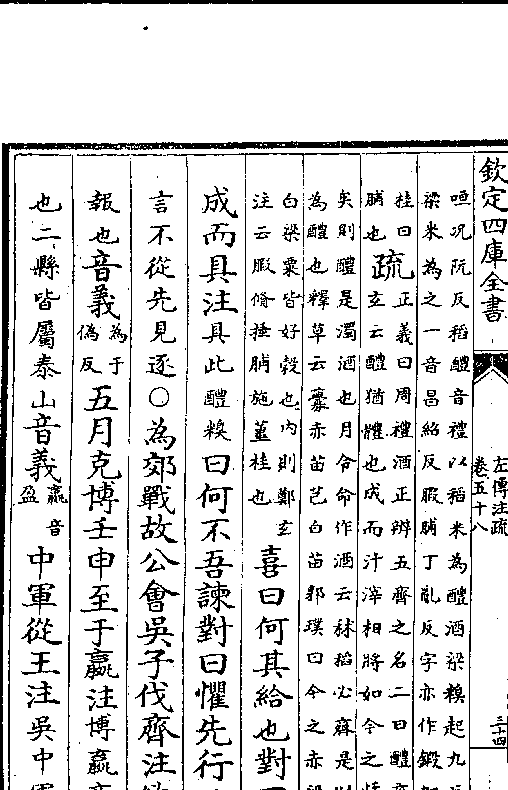 欽定四庫全書
左傳注疏
卷五十八
三十四
咺况阮反稻醴音禮以稻米為醴酒梁糗起九
梁米為之一音昌紹反腶脯丁亂反字亦作鍛
桂曰
脯也
疏
正義曰周禮酒正辨五齊之名二曰醴
玄云醴猶體也成而汁滓相將如今之
矣則醴是濁酒也月令命作酒云秫稻必齊是
為醴也釋草云虋赤苗芑白苗郭璞曰今之赤
白梁粟皆好穀也内則鄭玄
注云腶脩捶脯施薑桂也
喜曰何其給也對
成而具注具此醴糗曰何不吾諫對曰懼先行
言不從先見逐○為郊戰故公會吳子伐齊注
報也音義
為于
偽反
五月克博壬申至于嬴注博嬴
也二縣皆屬泰山音義
嬴音
盈
中軍從王注吳中軍